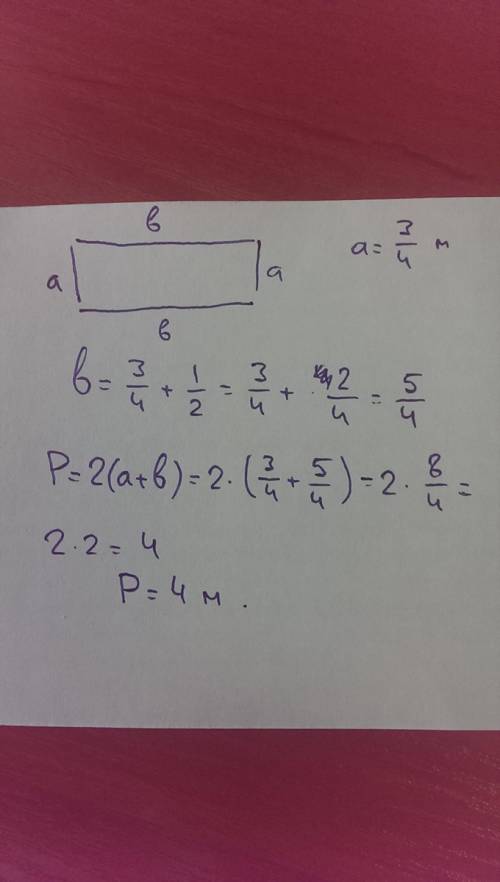 в
a a a = 3/4 м
в
в = 3/4 + 1/2 = 3/4 + 2/4 = 5/4
P = 2(a+в) = 2 · (3/4 + 5/4) = 2 · 8/4 =
2 · 2 = 4
P = 4 м .